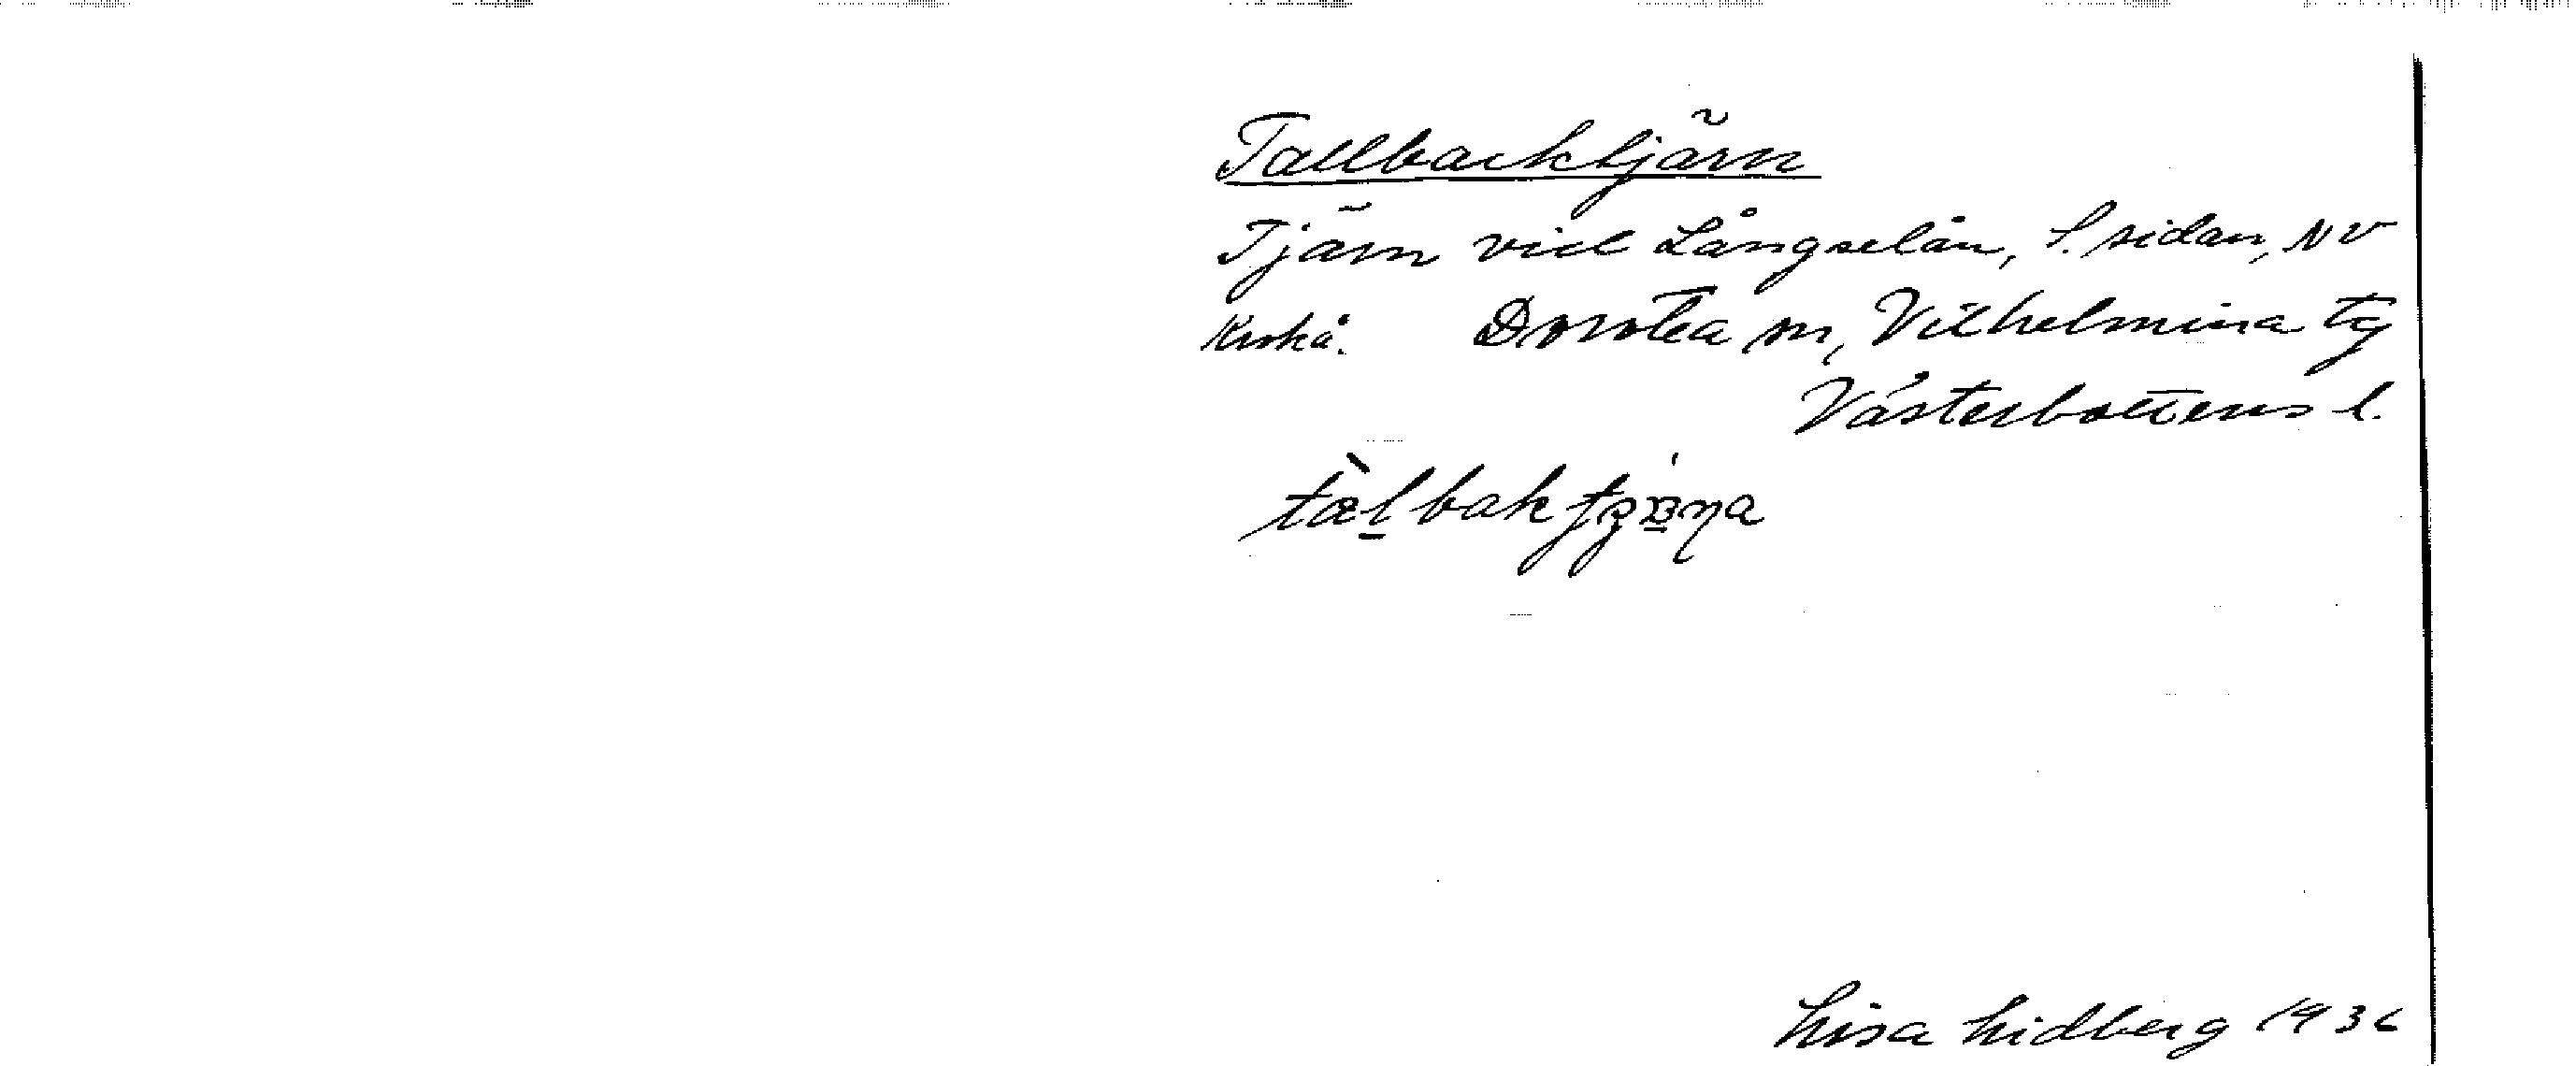 Tallbacktjärn
Tjärn vid Långselån, S. sidan, NV
Dorotea sn, Vilhelmina tg
Västerbottens l.
Lisa Lidberg 1936